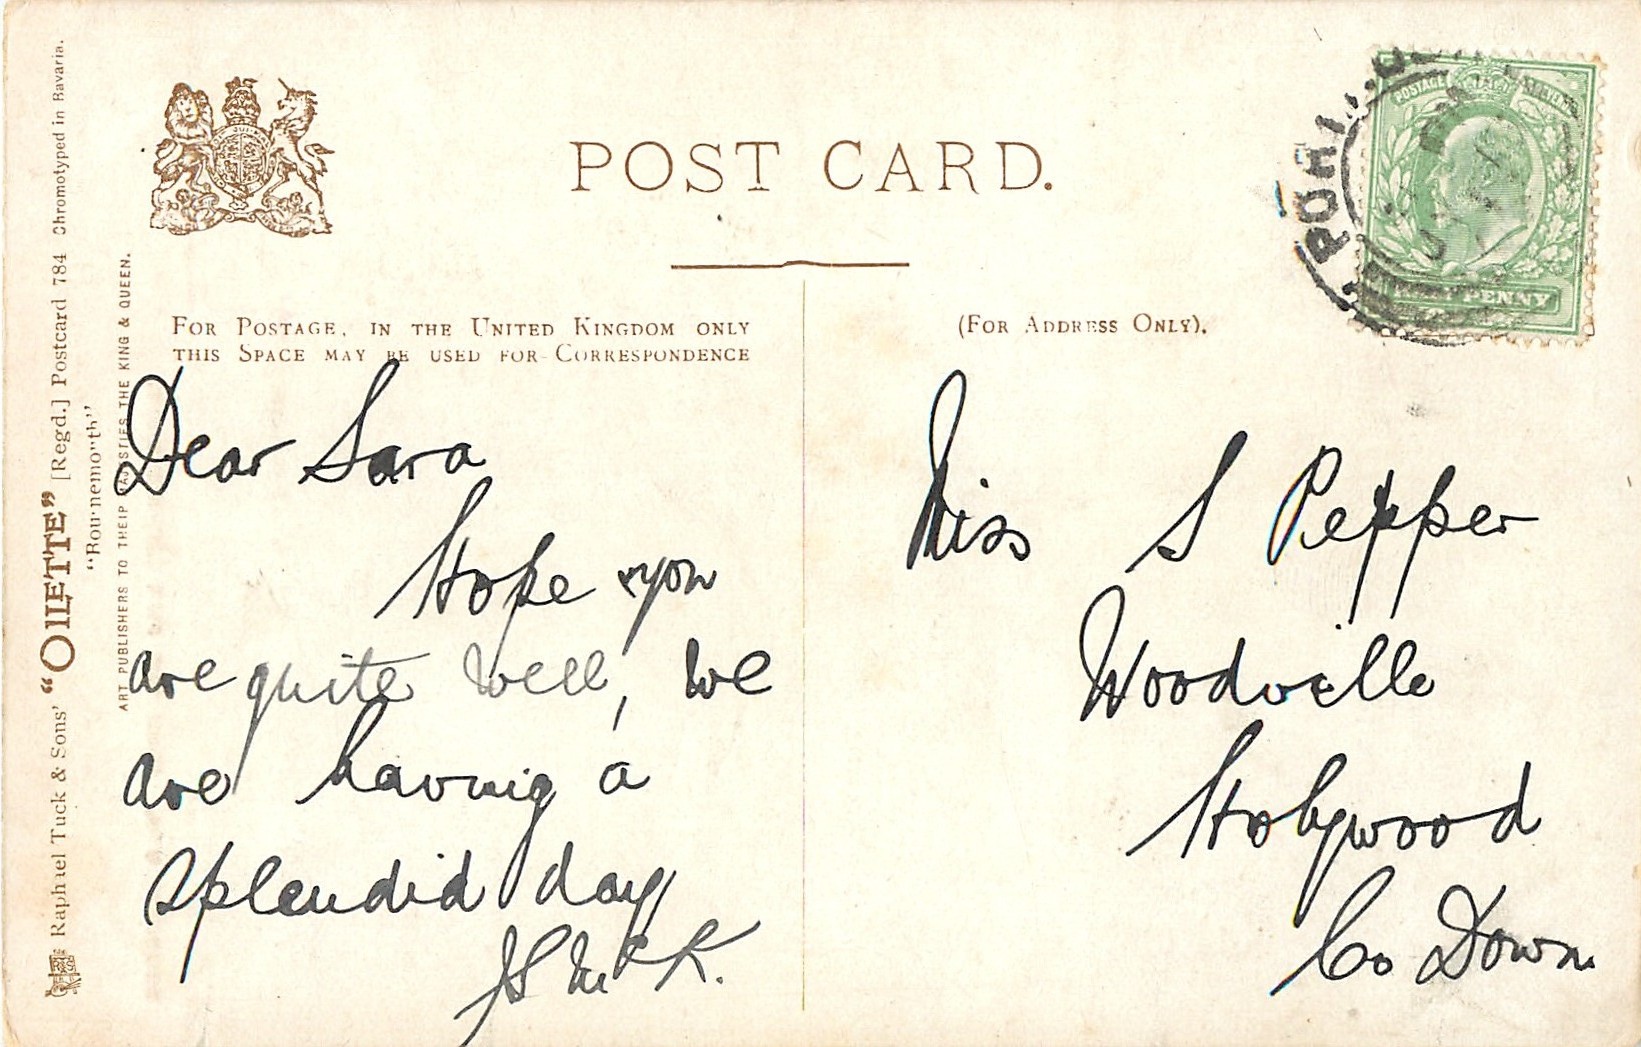 POST CARD.
FOR POSTAGE, IN THE UNITED KINGDOM ONLY
THIS SPACE MAY BE USED FOR CORRESPONDENCE
(FOR ADDRESS ONLY).
Dear Sara
Hope you
are quite well, we
are having a
splendid day
JS McK.
Miss S Pepper
Woodville
Holywood
Co Down
Raphael Tuck & Sons' "OILETTE" [Regd.] Postcard 784 Chromotyped in Bavaria.
"Bournemouth"
ART PUBLISHERS TO THEIR MAJESTIES THE KING & QUEEN.
POSTAGE
HALFPENNY